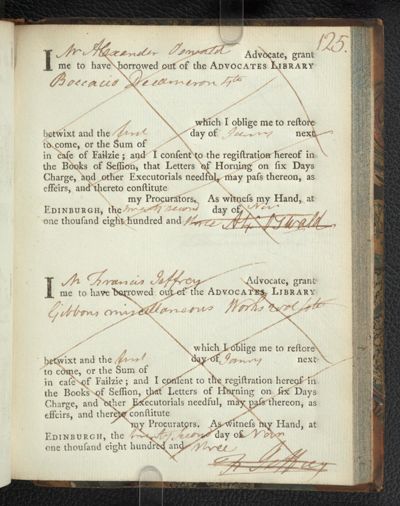 125.
I Mr Alexander Oswald Advocate, grant
me to have borrowed out of the ADVOCATES LIBRARY
Boccacio Decameron
which I oblige me to reſtore
betwixt and the first day of Janry next
to come, or the Sum of
in caſe of Failzie; and I conſent to the regiſtration hereof in
the Books of Seſſion, that Letters of Horning on ſix Days
Charge, and other Executorials needful, may paſs thereon, as
effeirs, and thereto conſtitute
my Procurators. As witneſs my Hand, at
EDINBURGH, the twenty second day of Novr
one thouſand eight hundred and three Alr Oswald
I Mr Francis Jeffrey Advocate, grant
me to have borrowed out of the ADVOCATES LIBRARY
Gibbons miscellaneous Works
which I oblige me to reſtore
betwixt and the first day of Janry next
to come, or the Sum of
in caſe of Failzie; and I conſent to the regiſtration hereof in
the Books of Seſſion, that Letters of Horning on ſix Days
Charge, and other Executorials needful, may paſs thereon, as
effeirs, and thereto conſtitute
my Procurators. As witneſs my Hand, at
EDINBURGH, the twenty second day of Novr
one thouſand eight hundred and three
F. Jeffrey